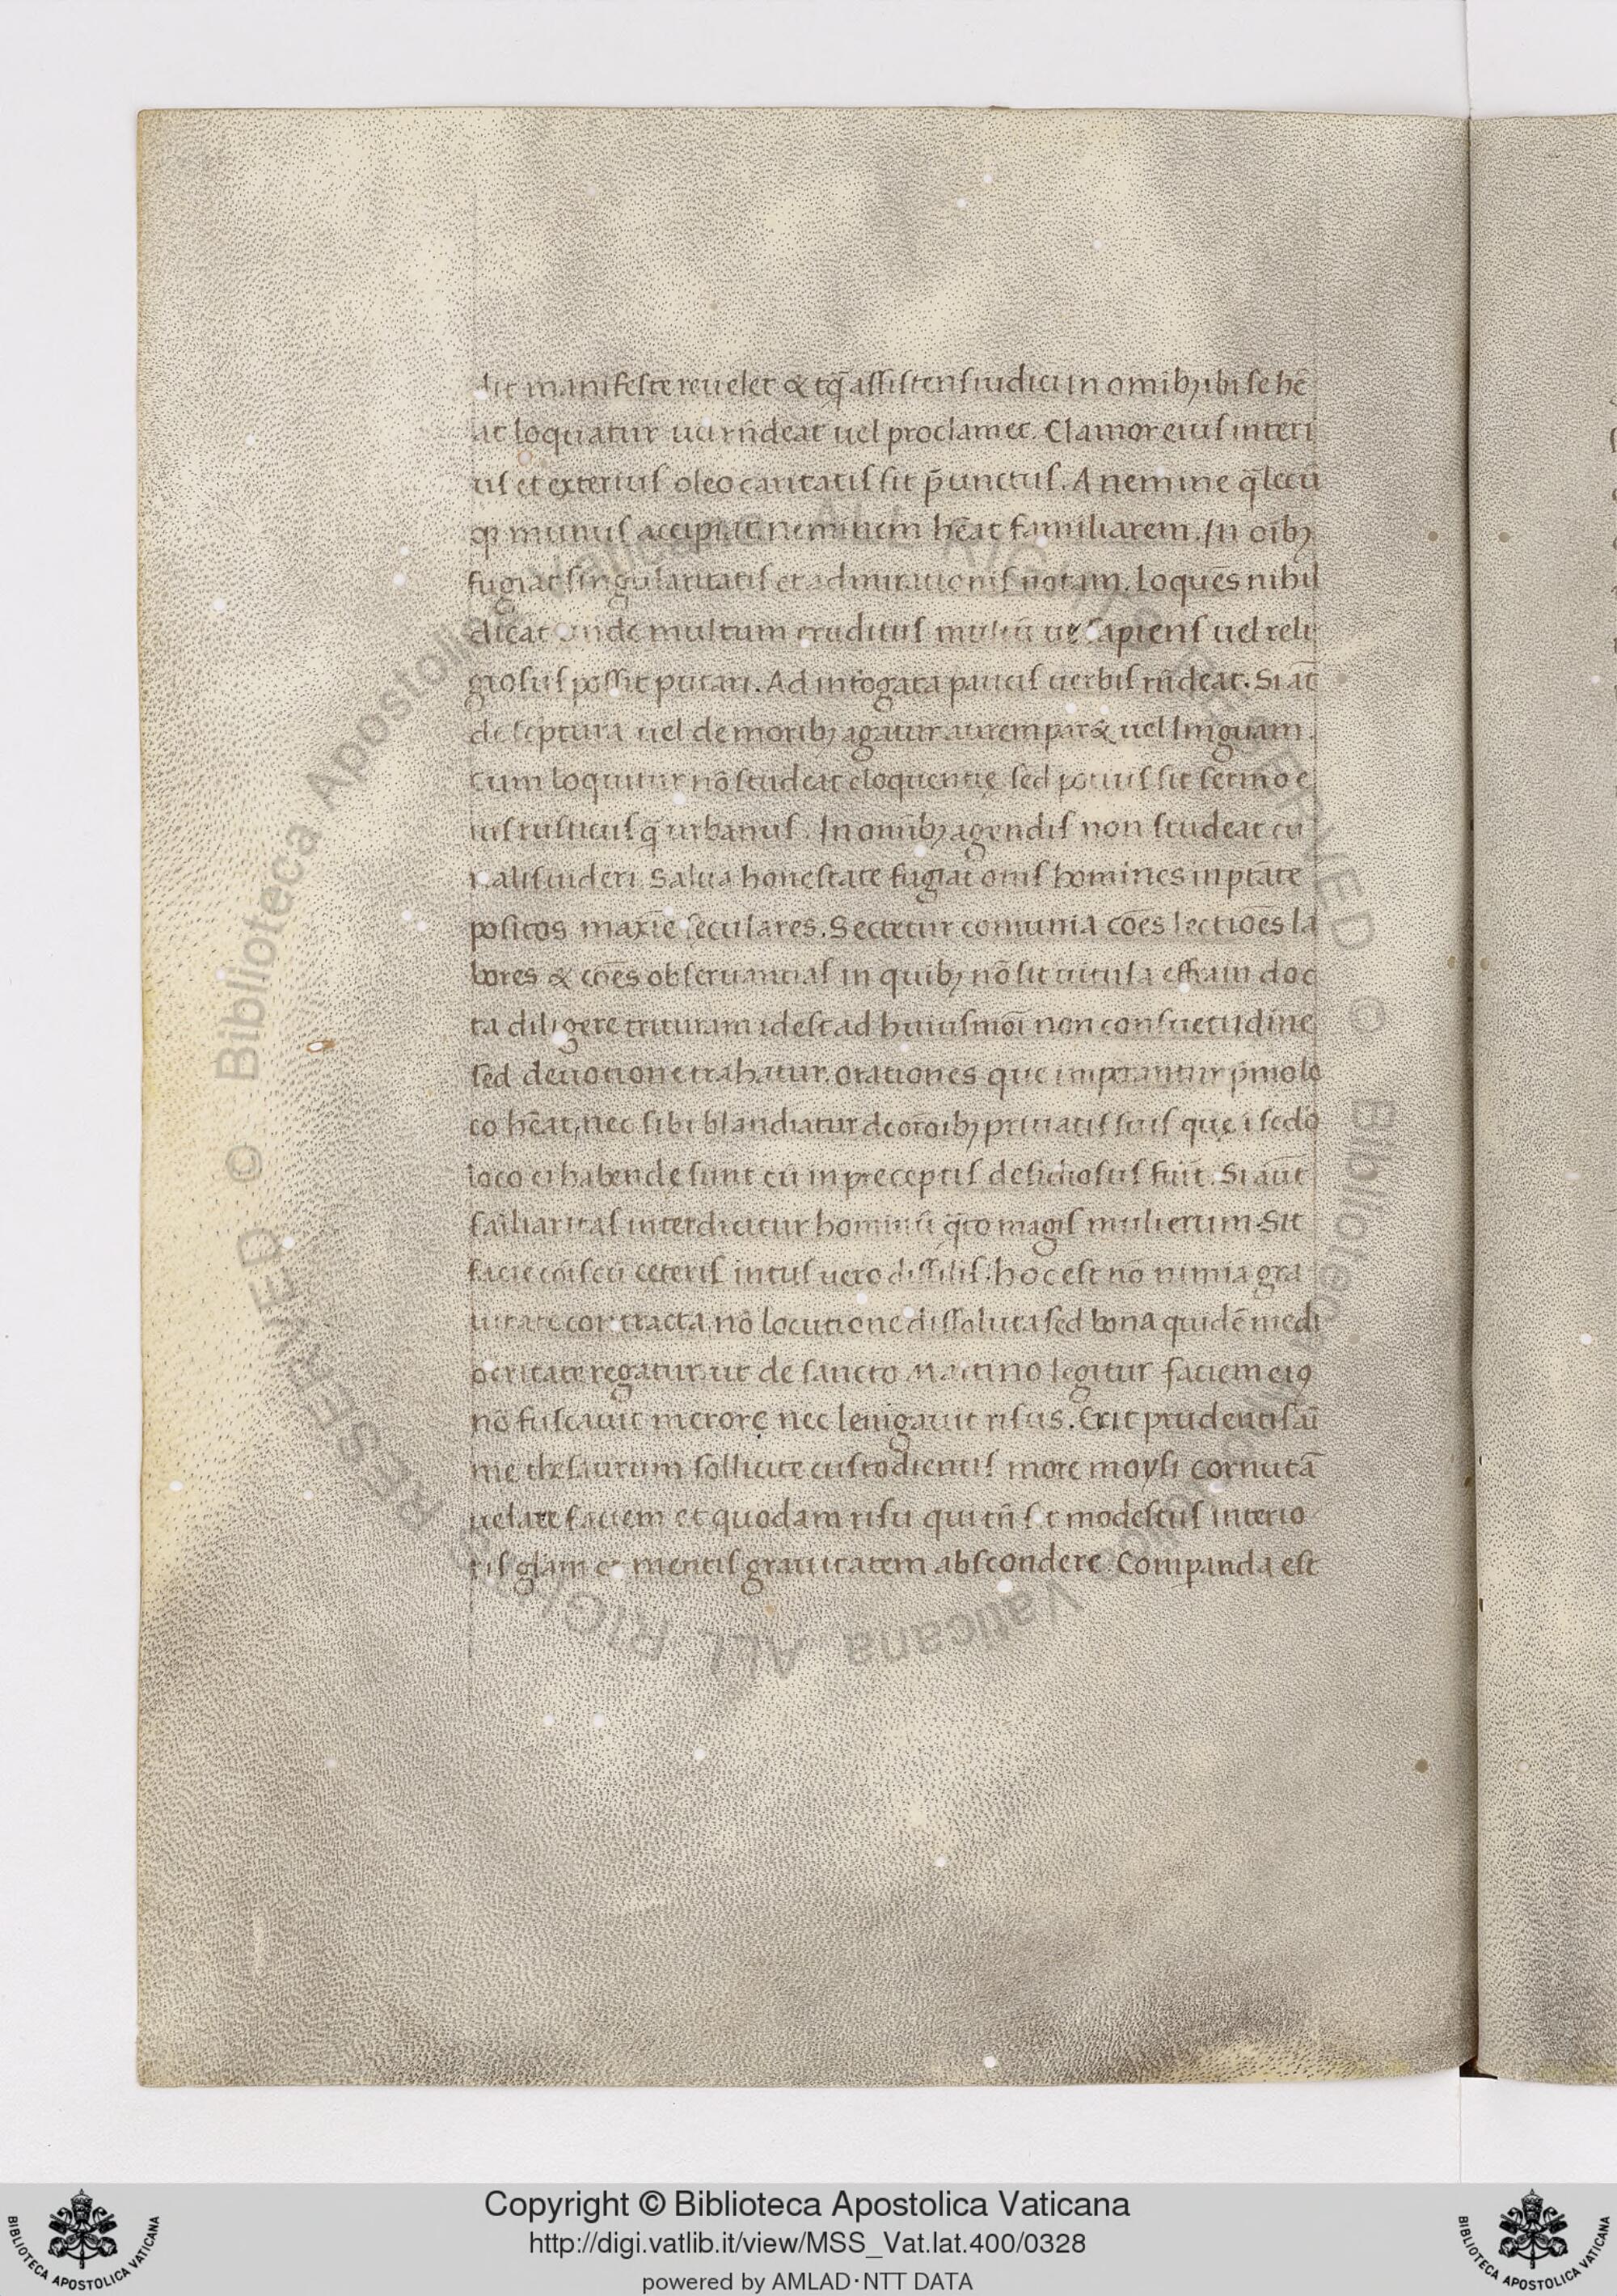 dit manifeste reuelet & tq̄ assistens iudici in omnib; ibi se hē
at loquatur uel rn̄deat uel proclamet. Clamor eius interi
us et exterius oleo caritatis sit p̄unctus. A nemine q̄lecū
qꝫ munus accipiat neminem hēat familiarem. In oib;
fugiat singularitatis et admirationis notam. Loquēs nihil
dicat unde multum eruditus multū ue sapiens uel reli
giosus possit putari. Ad int̄ogata paucis uerbis rn̄deat. Si aūt
de sc̄ptura uel de morib; agatur aurem par& uel linguam.
Cum loquitur nō studeat eloquentię sed potius sit sermo e
ius rusticus q̄ urbanus. In omib; agendis non studeat cu
rialis uideri. Salua honestate fugiat om̄s homines in ptāte
positos maxīe seculares. Sectetur comunia cōēs lectiōēs la
bores & cōēs obseruantias in quib; nō sit uitula effraim doc
ta diligere trituram idest ad huiusmōi non consuetudine
sed deuotione trahatur. orationes que imperantur p̄mo lo
co hēat, nec sibi blandiatur de orōib; priuatis suis quę ī sc̄do
loco ei habendę sunt cū in preceptis desidiosus fuīt. Si aūt
familiaritas interdicitur hominū q̄to magis mulierum. Sit
facie cōis cū ceteris intus uero dissīlis. hoc est nō nimia gra
uitate contracta nō locutione dissoluta sed bona quidē medi
ocritate regatur. ut de sancto Martino legitur faciem eiꝰ
nō fuscauit merore nec leuigauit risus. Erit prudentis ai
me thesaurum sollicite custodientis more moysi cornutā
uelare faciem et quodam risu qui tn̄ sit modestus interio
ris glām et mentis grauitatem abscondere. Comparanda est
Copyright © Biblioteca Apostolica Vaticana
http://digi.vatlib.it/view/MSS_Vat.lat.400/0328
powered by AMLAD·NTT DATA
BIBLIOTECA APOSTOLICA VATICANA
BIBLIOTECA APOSTOLICA VATICANA
© Biblioteca Apostolica Vaticana ALL RIGHTS RESERVED © Biblioteca Apostolica Vaticana ALL RIGHTS RESERVED